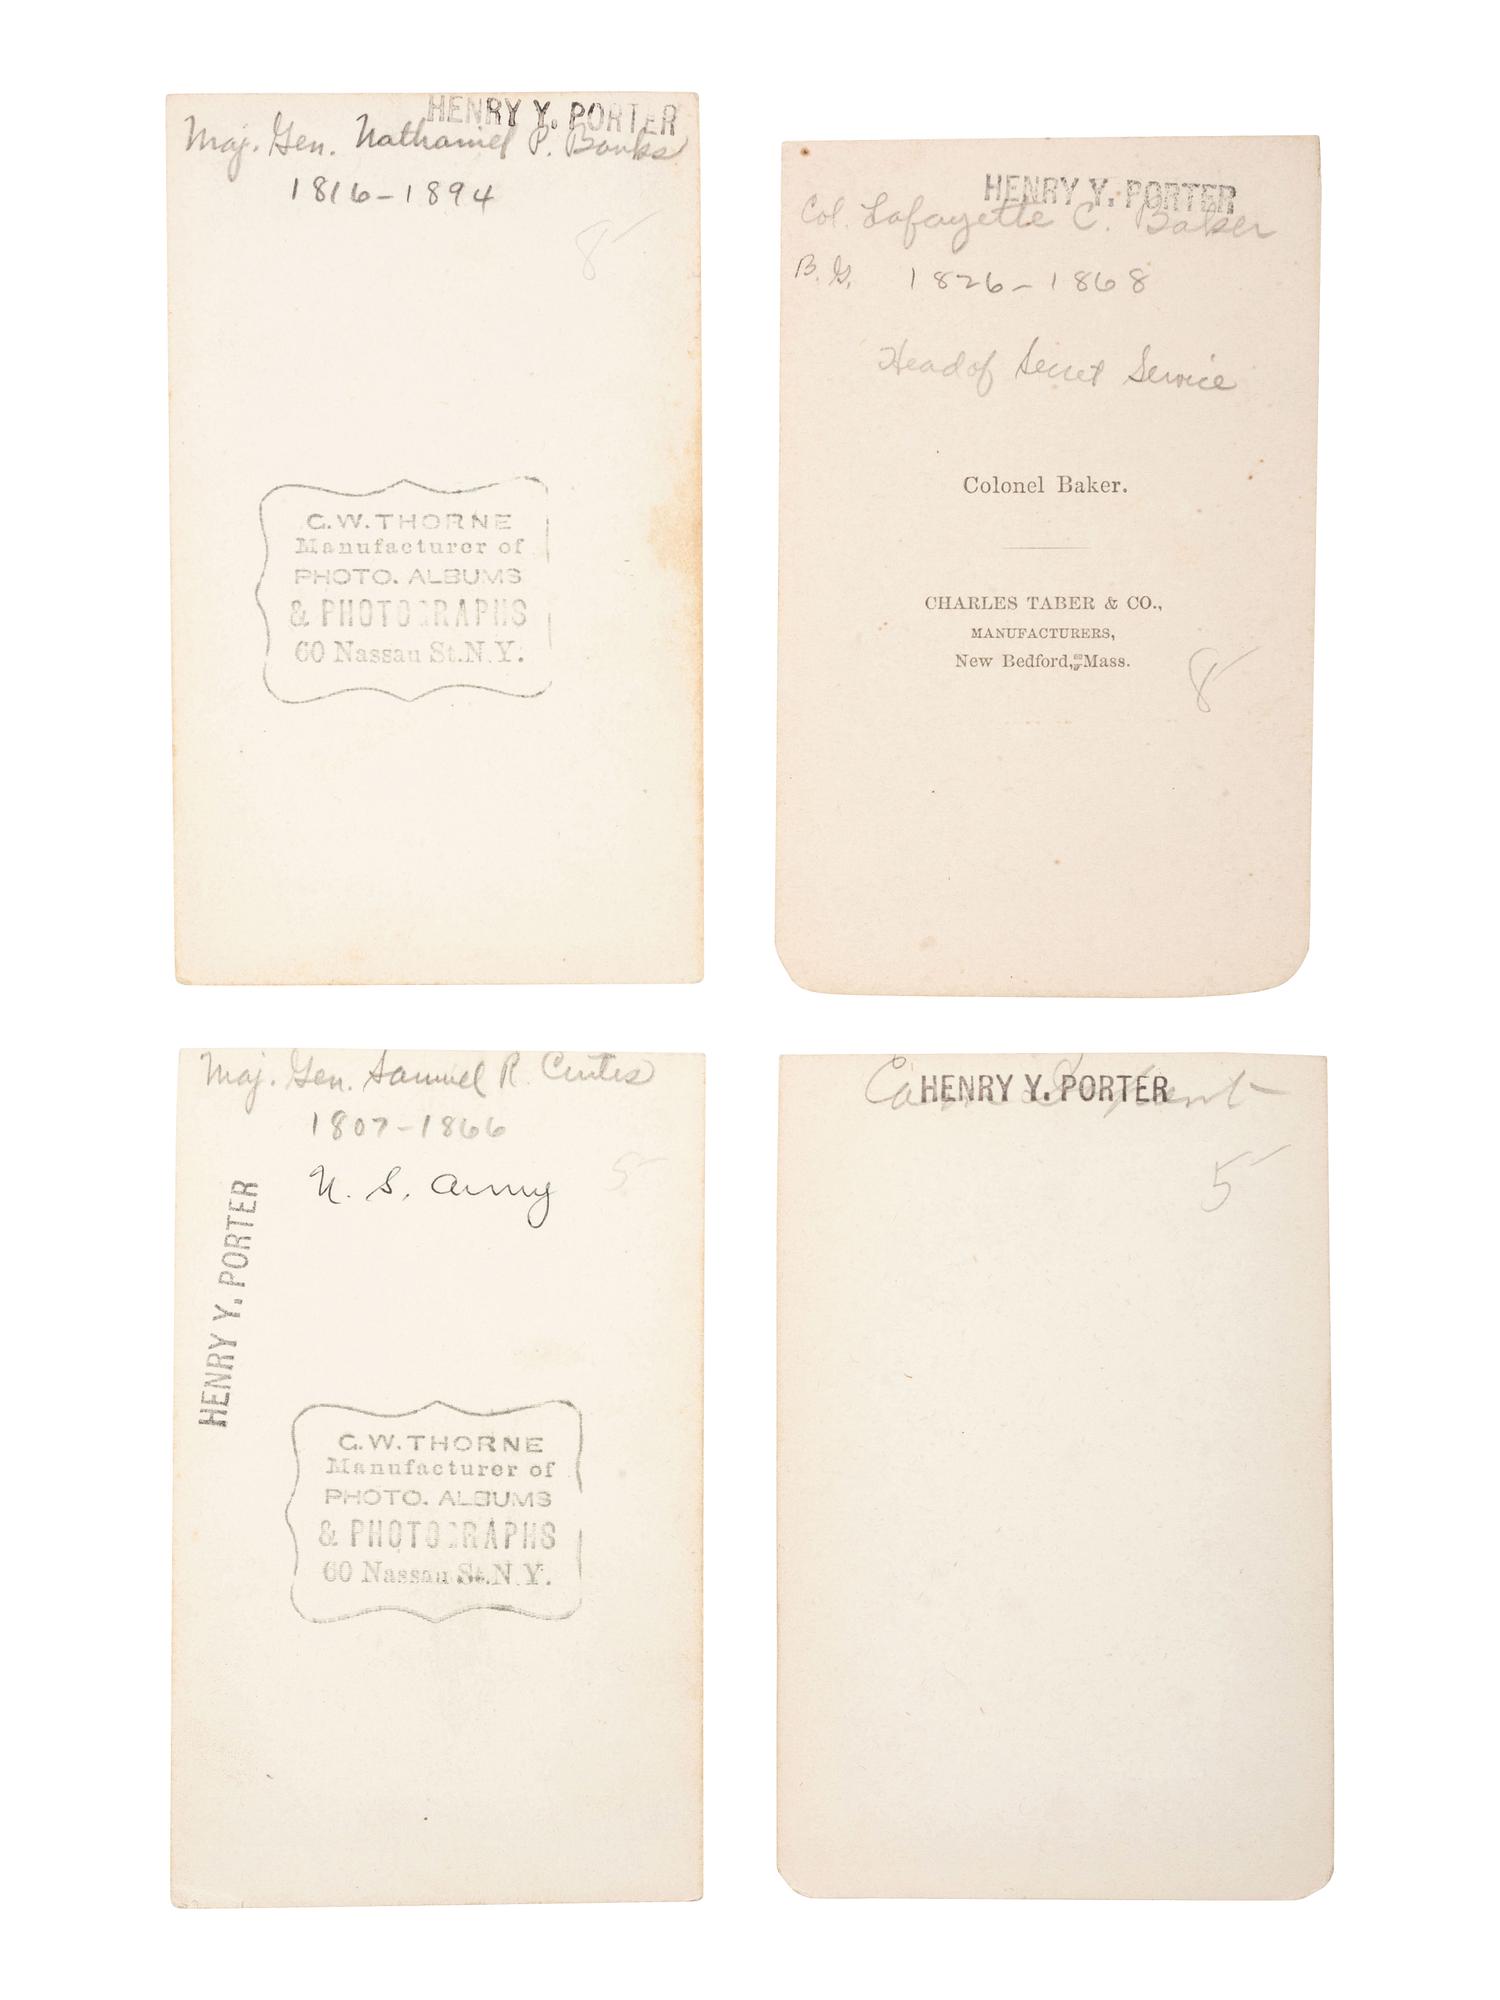 HENRY Y. PORTER
Maj. Gen. Nathaniel P. Banks
1816-1894
8
G. W. THORNE
Manufacturer of
PHOTO. ALBUMS
& PHOTOGRAPHS
60 Nassau St. N. Y.
HENRY Y. PORTER
Col. Lafayette C. Baker
B. G. 1826-1868
Head of Secret Service
Colonel Baker.
CHARLES TABER & CO.,
MANUFACTURERS,
New Bedford, Mass.
8
Maj. Gen. Samuel R. Curtis
1807-1866
U. S. Army
5
HENRY Y. PORTER
G. W. THORNE
Manufacturer of
PHOTO. ALBUMS
& PHOTOGRAPHS
60 Nassau St. N. Y.
HENRY Y. PORTER
5